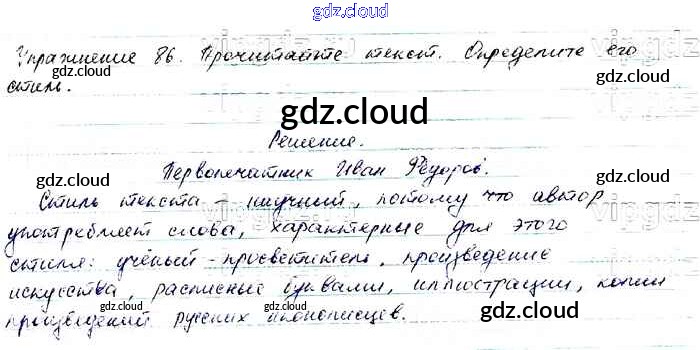 gdz.cloud
Упражнение 86. Прочитайте текст. Определите его
стиль.
gdz.cloud
gdz.cloud
gdz.cloud
Решение.
Первопечатник Иван Фёдоров.
gdz.cloud
gdz.cloud
Стиль текста – научный, потому что автор
употребляет слова, характерные для этого
стиля: учёный-просветитель, произведение
искусства, расписные буквами, иллюстрации, копии
произведений русских иконописцев.
gdz.cloud
gdz.cloud
gdz.cloud